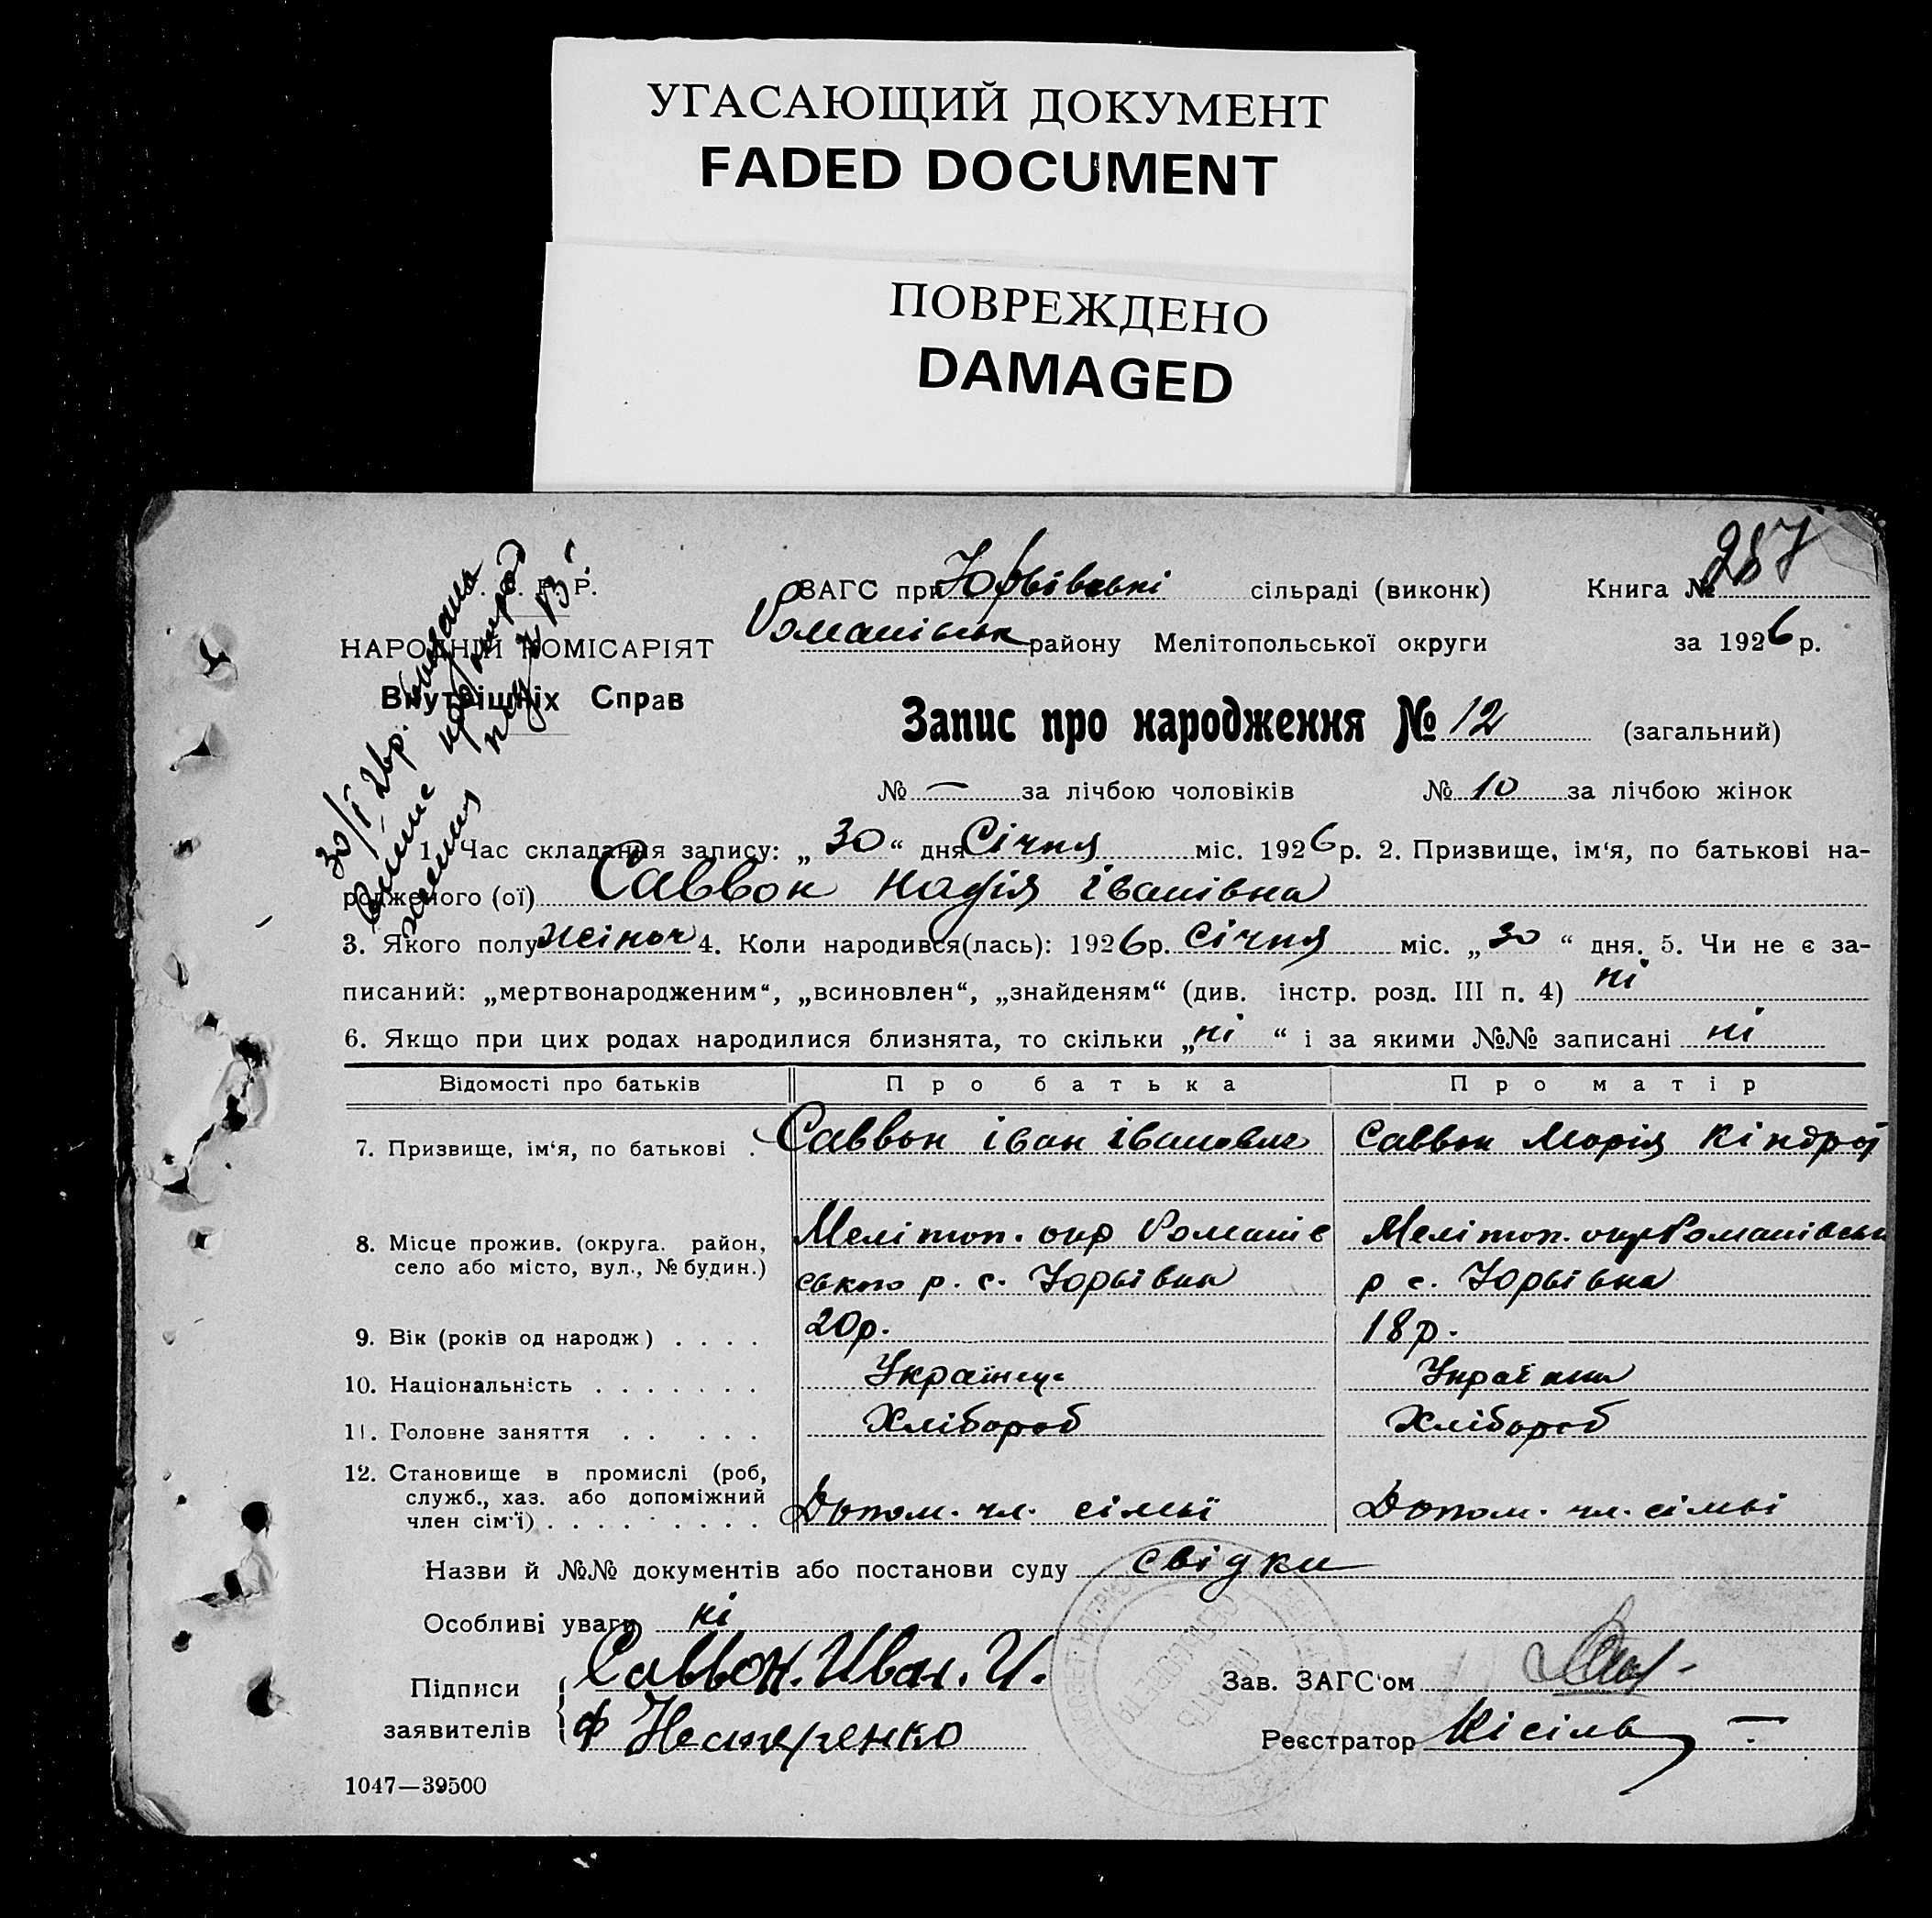 УГАСАЮЩИЙ ДОКУМЕНТ
FADED DOCUMENT
ПОВРЕЖДЕНО
DAMAGED
287
Р. Р.
ЗАГС при Юрьівські сільраді (виконк) Книга №
НАРОДНІЙ КОМІСАРІЯТ
Романівськ району Мелітопольської округи за 1926 р.
Внутрішніх Справ
Запис про народження № 12 (загальний)
№ — за лічбою чоловіків № 10 за лічбою жінок
30/I 26р.
1. Час складання запису: „30“ дня Січня міс. 1926 р. 2. Призвище, ім‘я, по батькові на-
родженого (ої) Саввон Надія Іванівна
3. Якого полу жіноч 4. Коли народився(лась): 1926 р. Січня міс. „30“ дня. 5. Чи не є за-
писаний: „мертвонародженим“, „всиновлен“, „знайденям“ (див. інстр. розд. III п. 4) ні
6. Якщо при цих родах народилися близнята, то скільки „ні“ і за якими №№ записані ні
Відомості про батьків Про батька Про матір
7. Призвище, ім‘я, по батькові . Саввон Іван Іванович Саввон Марія Кіндрат
8. Місце прожив. (округа. район, село або місто, вул., № будин.)
Мелітоп. окр Романів Мелітоп. окр Романівськ
ського р. с. Юрьівка р с. Юрьівка
9. Вік (років од народж) . . . . 20р. 18р.
10. Національність . . . . . . . Українец Українка
11. Головне заняття . . . . . Хлібороб Хлібороб
12. Становище в промислі (роб,
служб., хаз. або допоміжний
член сім‘ї) . . . . . . . . . Допом. чл. сімьї Допом. чл. сімьі
Назви й №№ документів або постанови суду свідки
Особливі уваги ні
Підписи Саввон. Иван. И. Зав. ЗАГС‘ом
заявителів Ф Нестеренко Реєстратор Кісіль
1047—39500